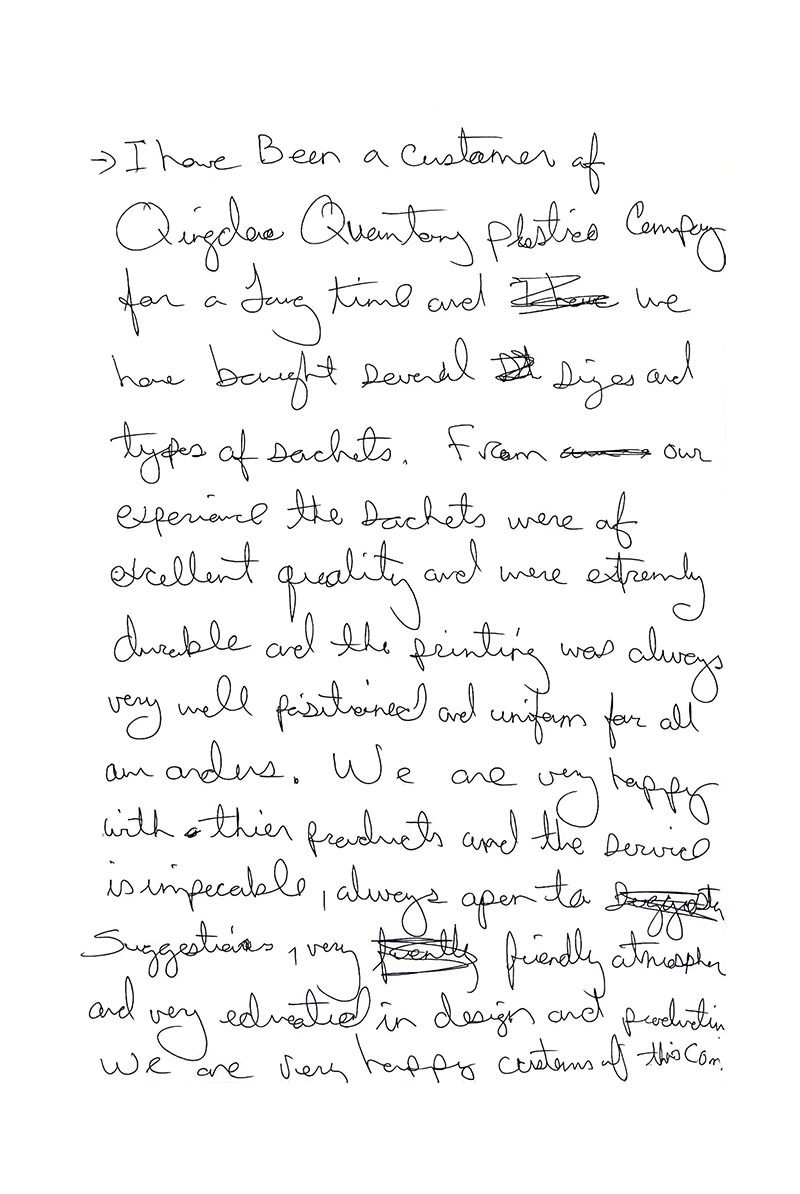 → I have Been a customer of
Qingdao Quantong plastics Company
for a long time and we
have bought several sizes and
types of sachets. From our
experience the sachets were of
excellent quality and were extremly
durable and the printing was always
very well positioned and uniform for all
our orders. We are very happy
with thier products and the service
is impecable, always open to
Suggestions, very friendly atmospher
and very educated in design and production
We are very happy customs of this Com.